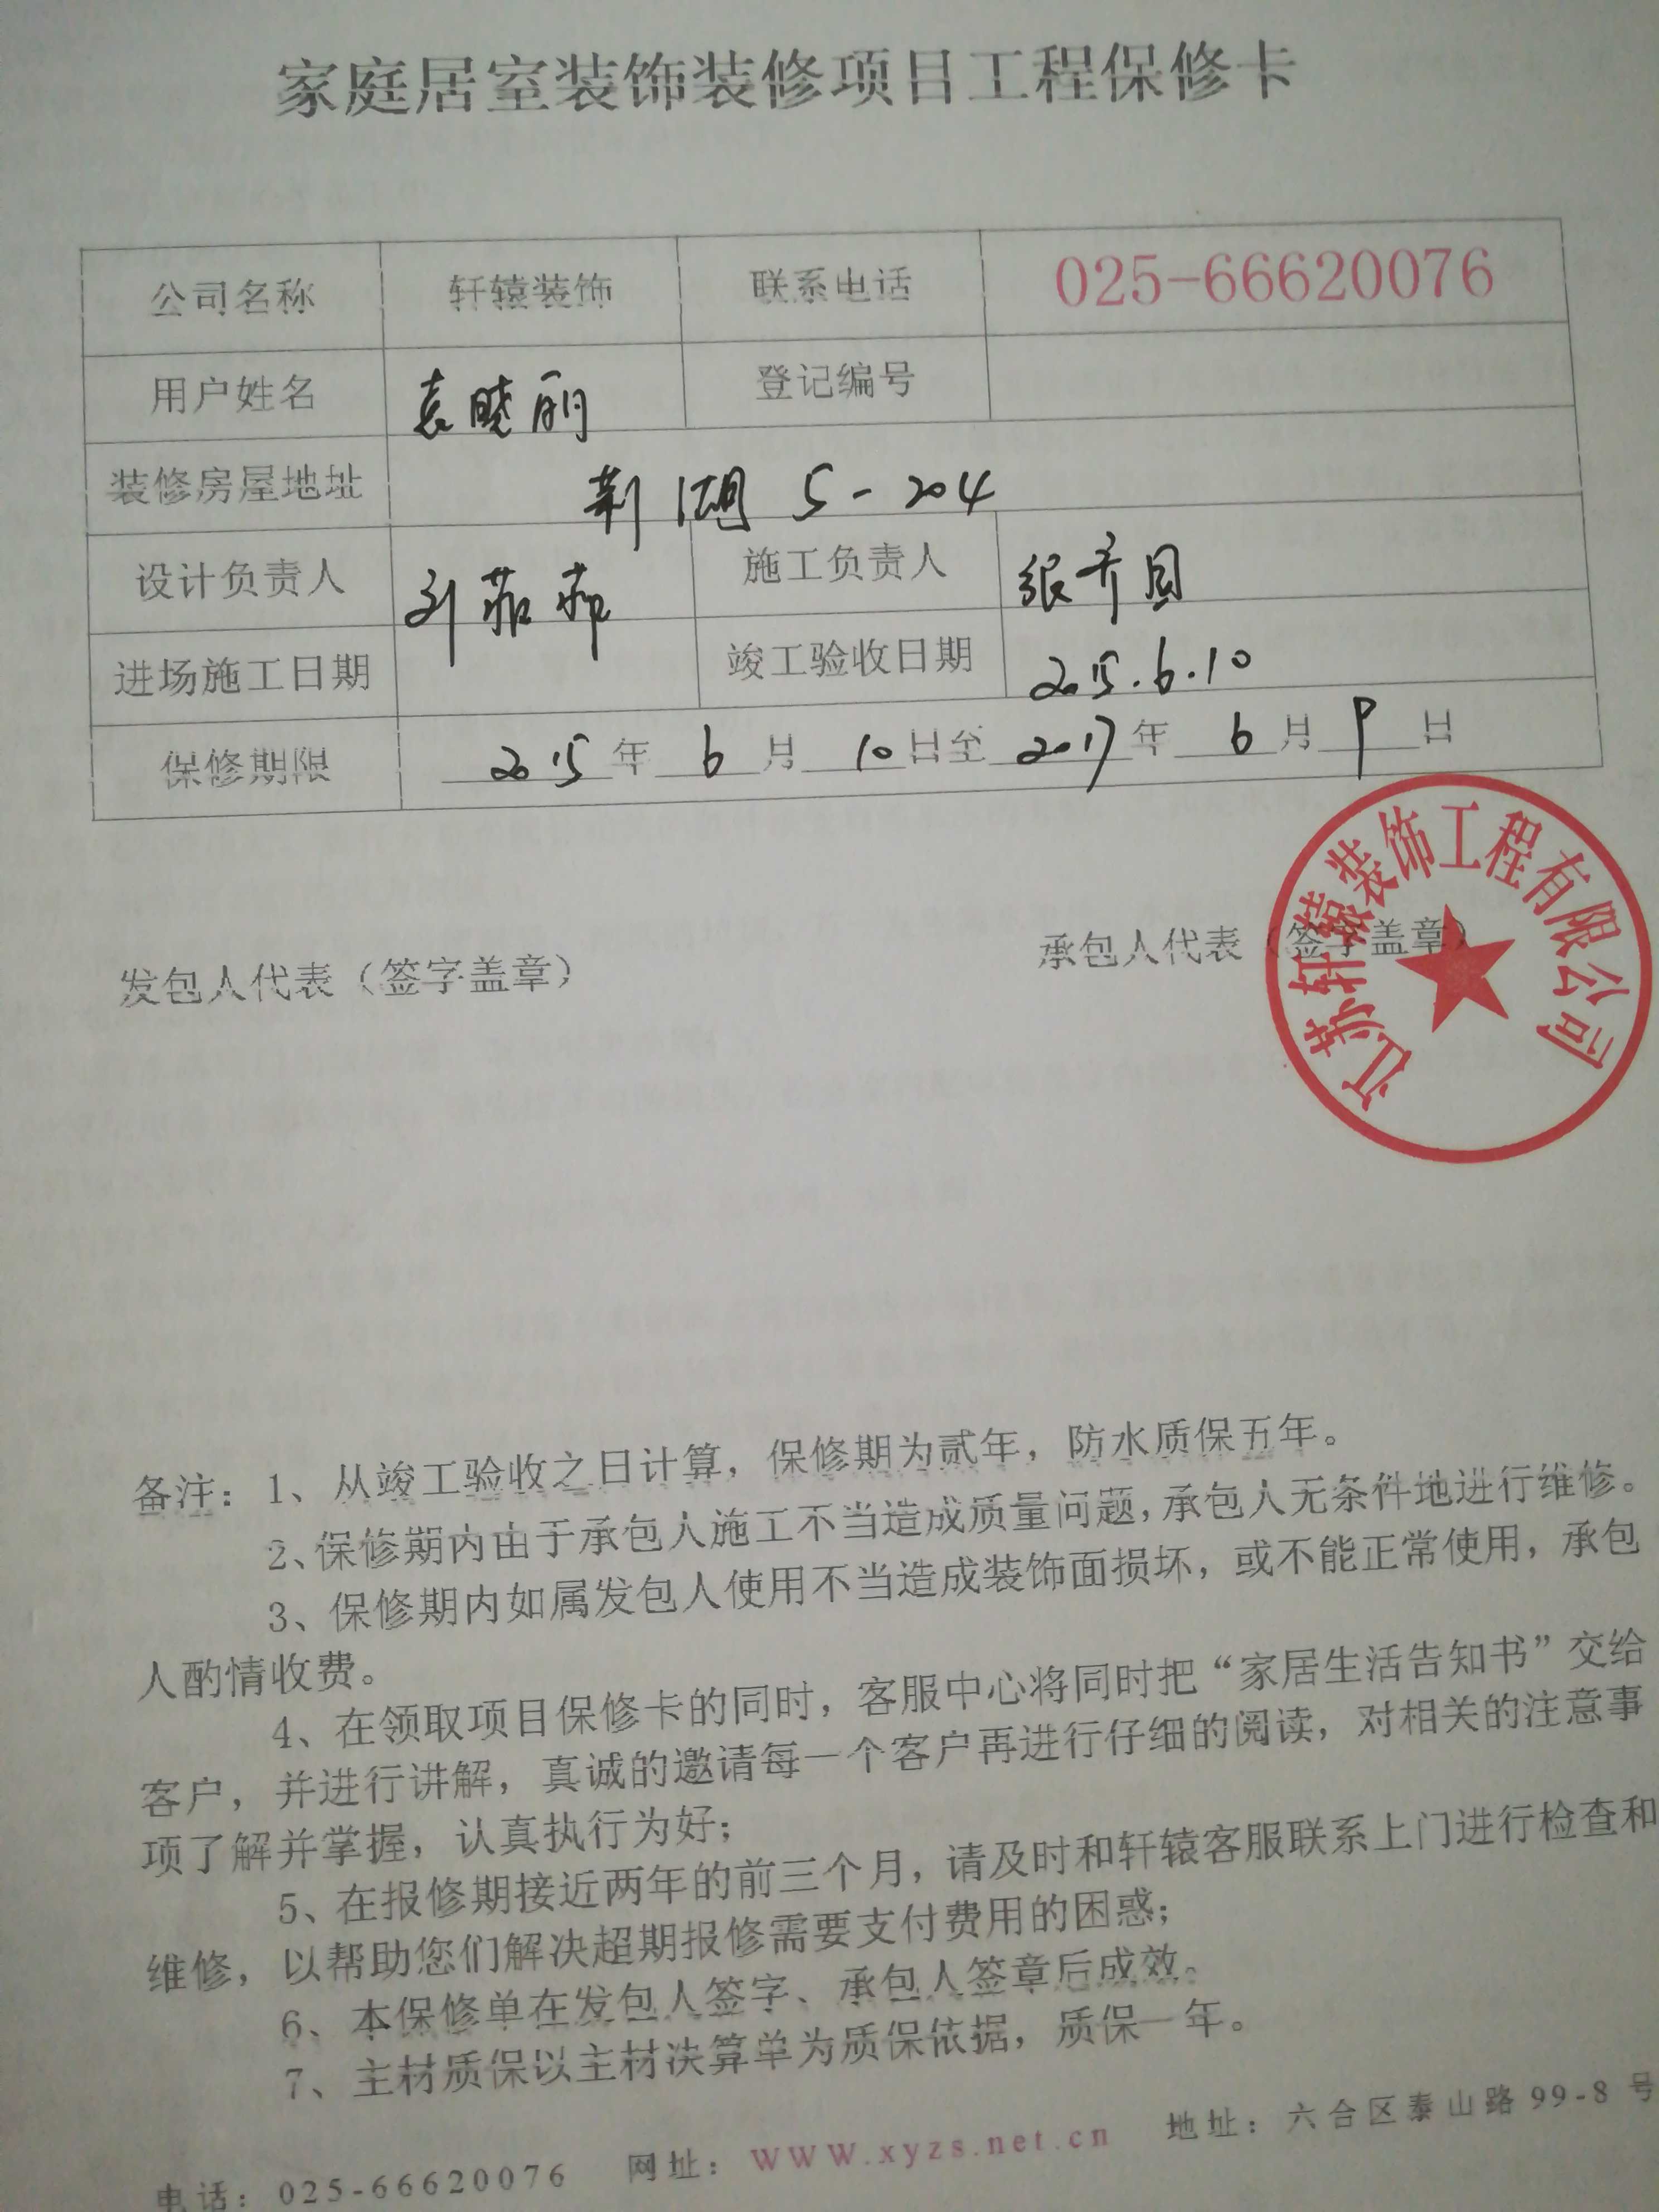 家庭居室装饰装修项目工程保修卡
公司名称 轩辕装饰 联系电话 025-66620076
用户姓名 袁晓丽 登记编号
装修房屋地址 荆湖 5-204
设计负责人 刘茹茹 施工负责人
进场施工日期 竣工验收日期 2015.6.10
保修期限 2015年6月10日至2017年6月9日
发包人代表（签字盖章） 承包人代表（签字盖章）
江苏轩辕装饰工程有限公司
备注：1、从竣工验收之日计算，保修期为贰年，防水质保五年。
2、保修期内由于承包人施工不当造成质量问题，承包人无条件地进行维修。
3、保修期内如属发包人使用不当造成装饰面损坏，或不能正常使用，承包
人酌情收费。
4、在领取项目保修卡的同时，客服中心将同时把“家居生活告知书”交给
客户，并进行讲解，真诚的邀请每一个客户再进行仔细的阅读，对相关的注意事
项了解并掌握，认真执行为好；
5、在报修期接近两年的前三个月，请及时和轩辕客服联系上门进行检查和
维修，以帮助您们解决超期报修需要支付费用的困惑；
6、本保修单在发包人签字、承包人签章后成效。
7、主材质保以主材决算单为质保依据，质保一年。
电话：025-66620076 网址：WWW.xyzs.net.cn 地址：六合区泰山路99-8号